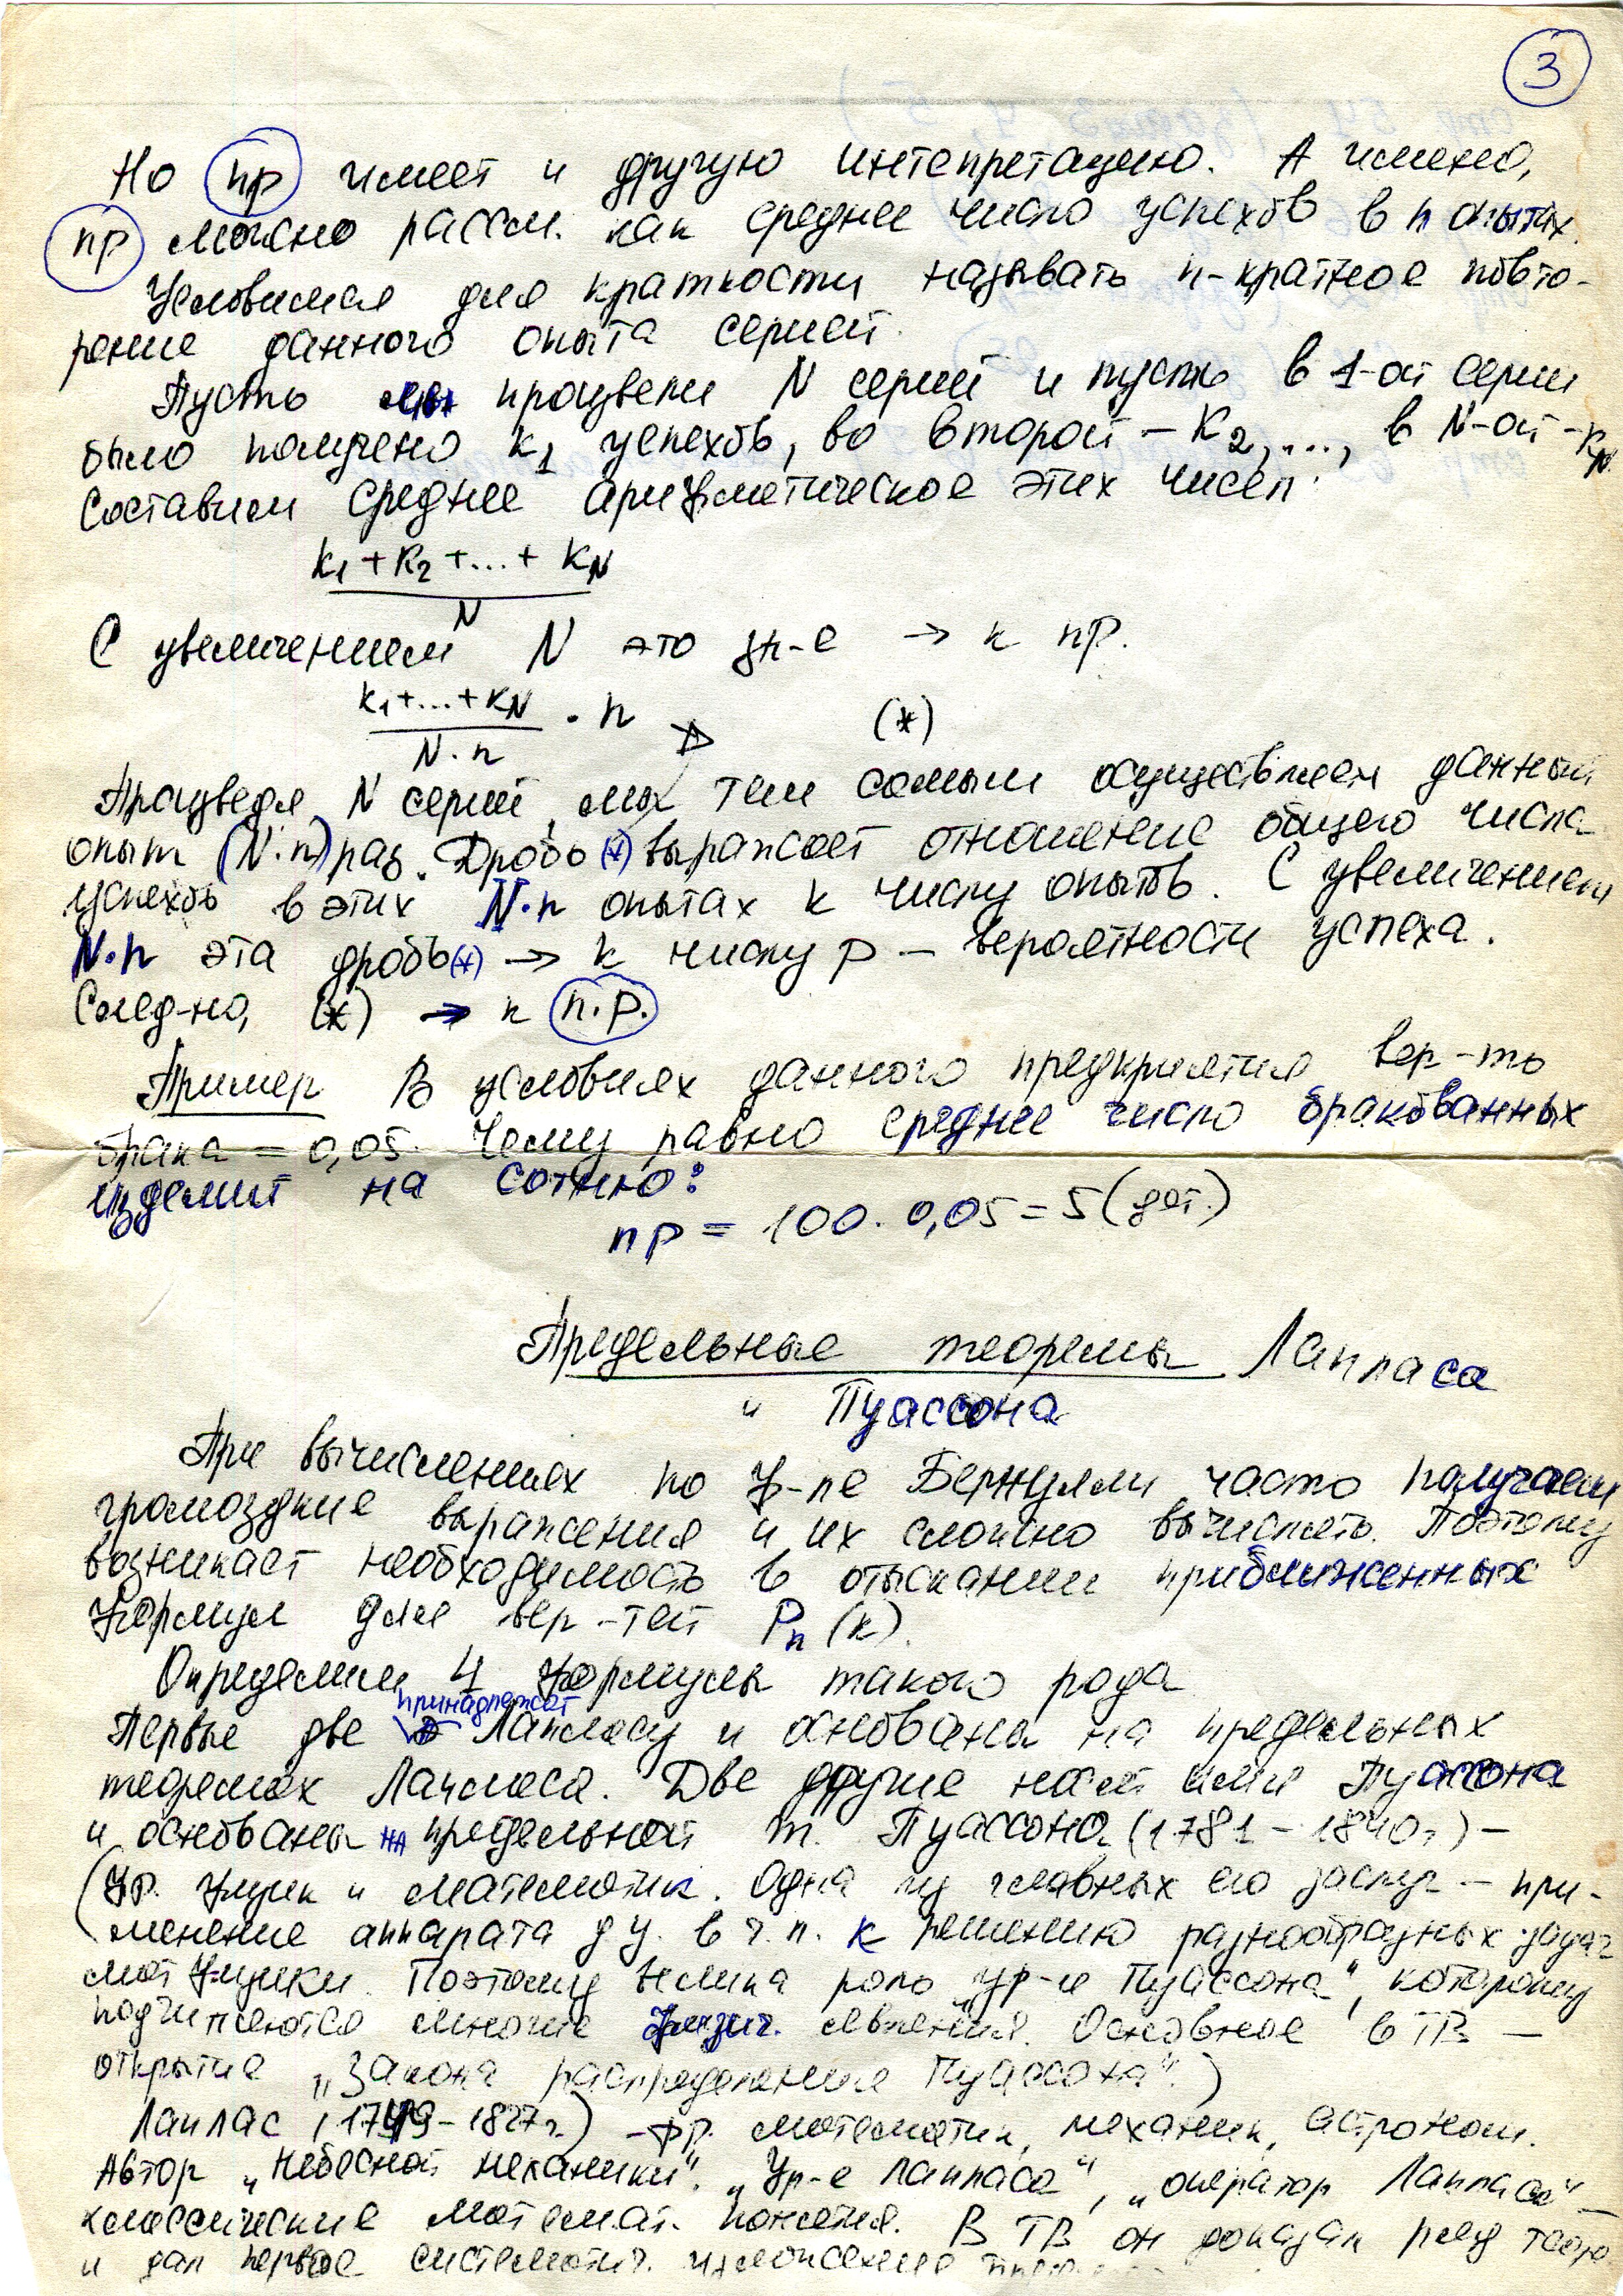 3
Но np имеет и другую интепретацию. А именно,
np можно рассм. как среднее число успехов в n опытах.
Условимся для краткости называть n-кратное повто-
рение данного опыта серией.
Пусть мы произвели N серий и пусть в 1-ой серии
было получено k₁ успехов, во второй – k₂,..., в N-ой – k_N
Составим среднее арифметическое этих чисел:
k₁ + k₂ +...+ k_N
N
С увеличением N это зн-е → к np.
k₁+...+k_N
N·n
· n (*)
Произведя N серий, мы тем самым осуществляем данный
опыт (N·n) раз. Дробь (*) выражает отношение общего числа
успехов в этих N·n опытах к числу опытов. С увеличением
N·n эта дробь (*) → к числу p – вероятности успеха.
След-но, (*) → к n.p.
Пример В условиях данного предприятия вер-ть
брака = 0,05. Чему равно среднее число бракованных
изделий на сотню?
np = 100 · 0,05 = 5 (дет.)
Предельные теоремы Лапласа
и Пуассона
При вычислениях по ф-ле Бернулли часто получаем
громоздкие выражения и их сложно вычислять. Поэтому
возникает необходимость в отыскании приближенных
формул для вер-тей Pₙ(k).
Определим 4 формулы такого рода
принадлежат
Первые две Лапласу и основаны на предельных
теоремах Лапласа. Две другие носят имя Пуассона
и основаны на предельной т. Пуассона (1781 – 1840г) –
(фр. физик и математик. Одна из главных его заслуг – при-
менение аппарата ду. в ч.п. к решению разнообразных задач
мат физики. Поэтому велика роль „ур-я Пуассона", которому
подчиняются многие физич. явления. Основное в ТВ –
открытие „Закона распределения Пуассона".)
Лаплас (1749 – 1827г) – фр. математик, механик, астроном.
Автор „Небесной механики". „Ур-е Лапласа", „оператор Лапласа" –
классические математ. понятия. В ТВ он доказал ряд теор
и дал первое систематич. изложение